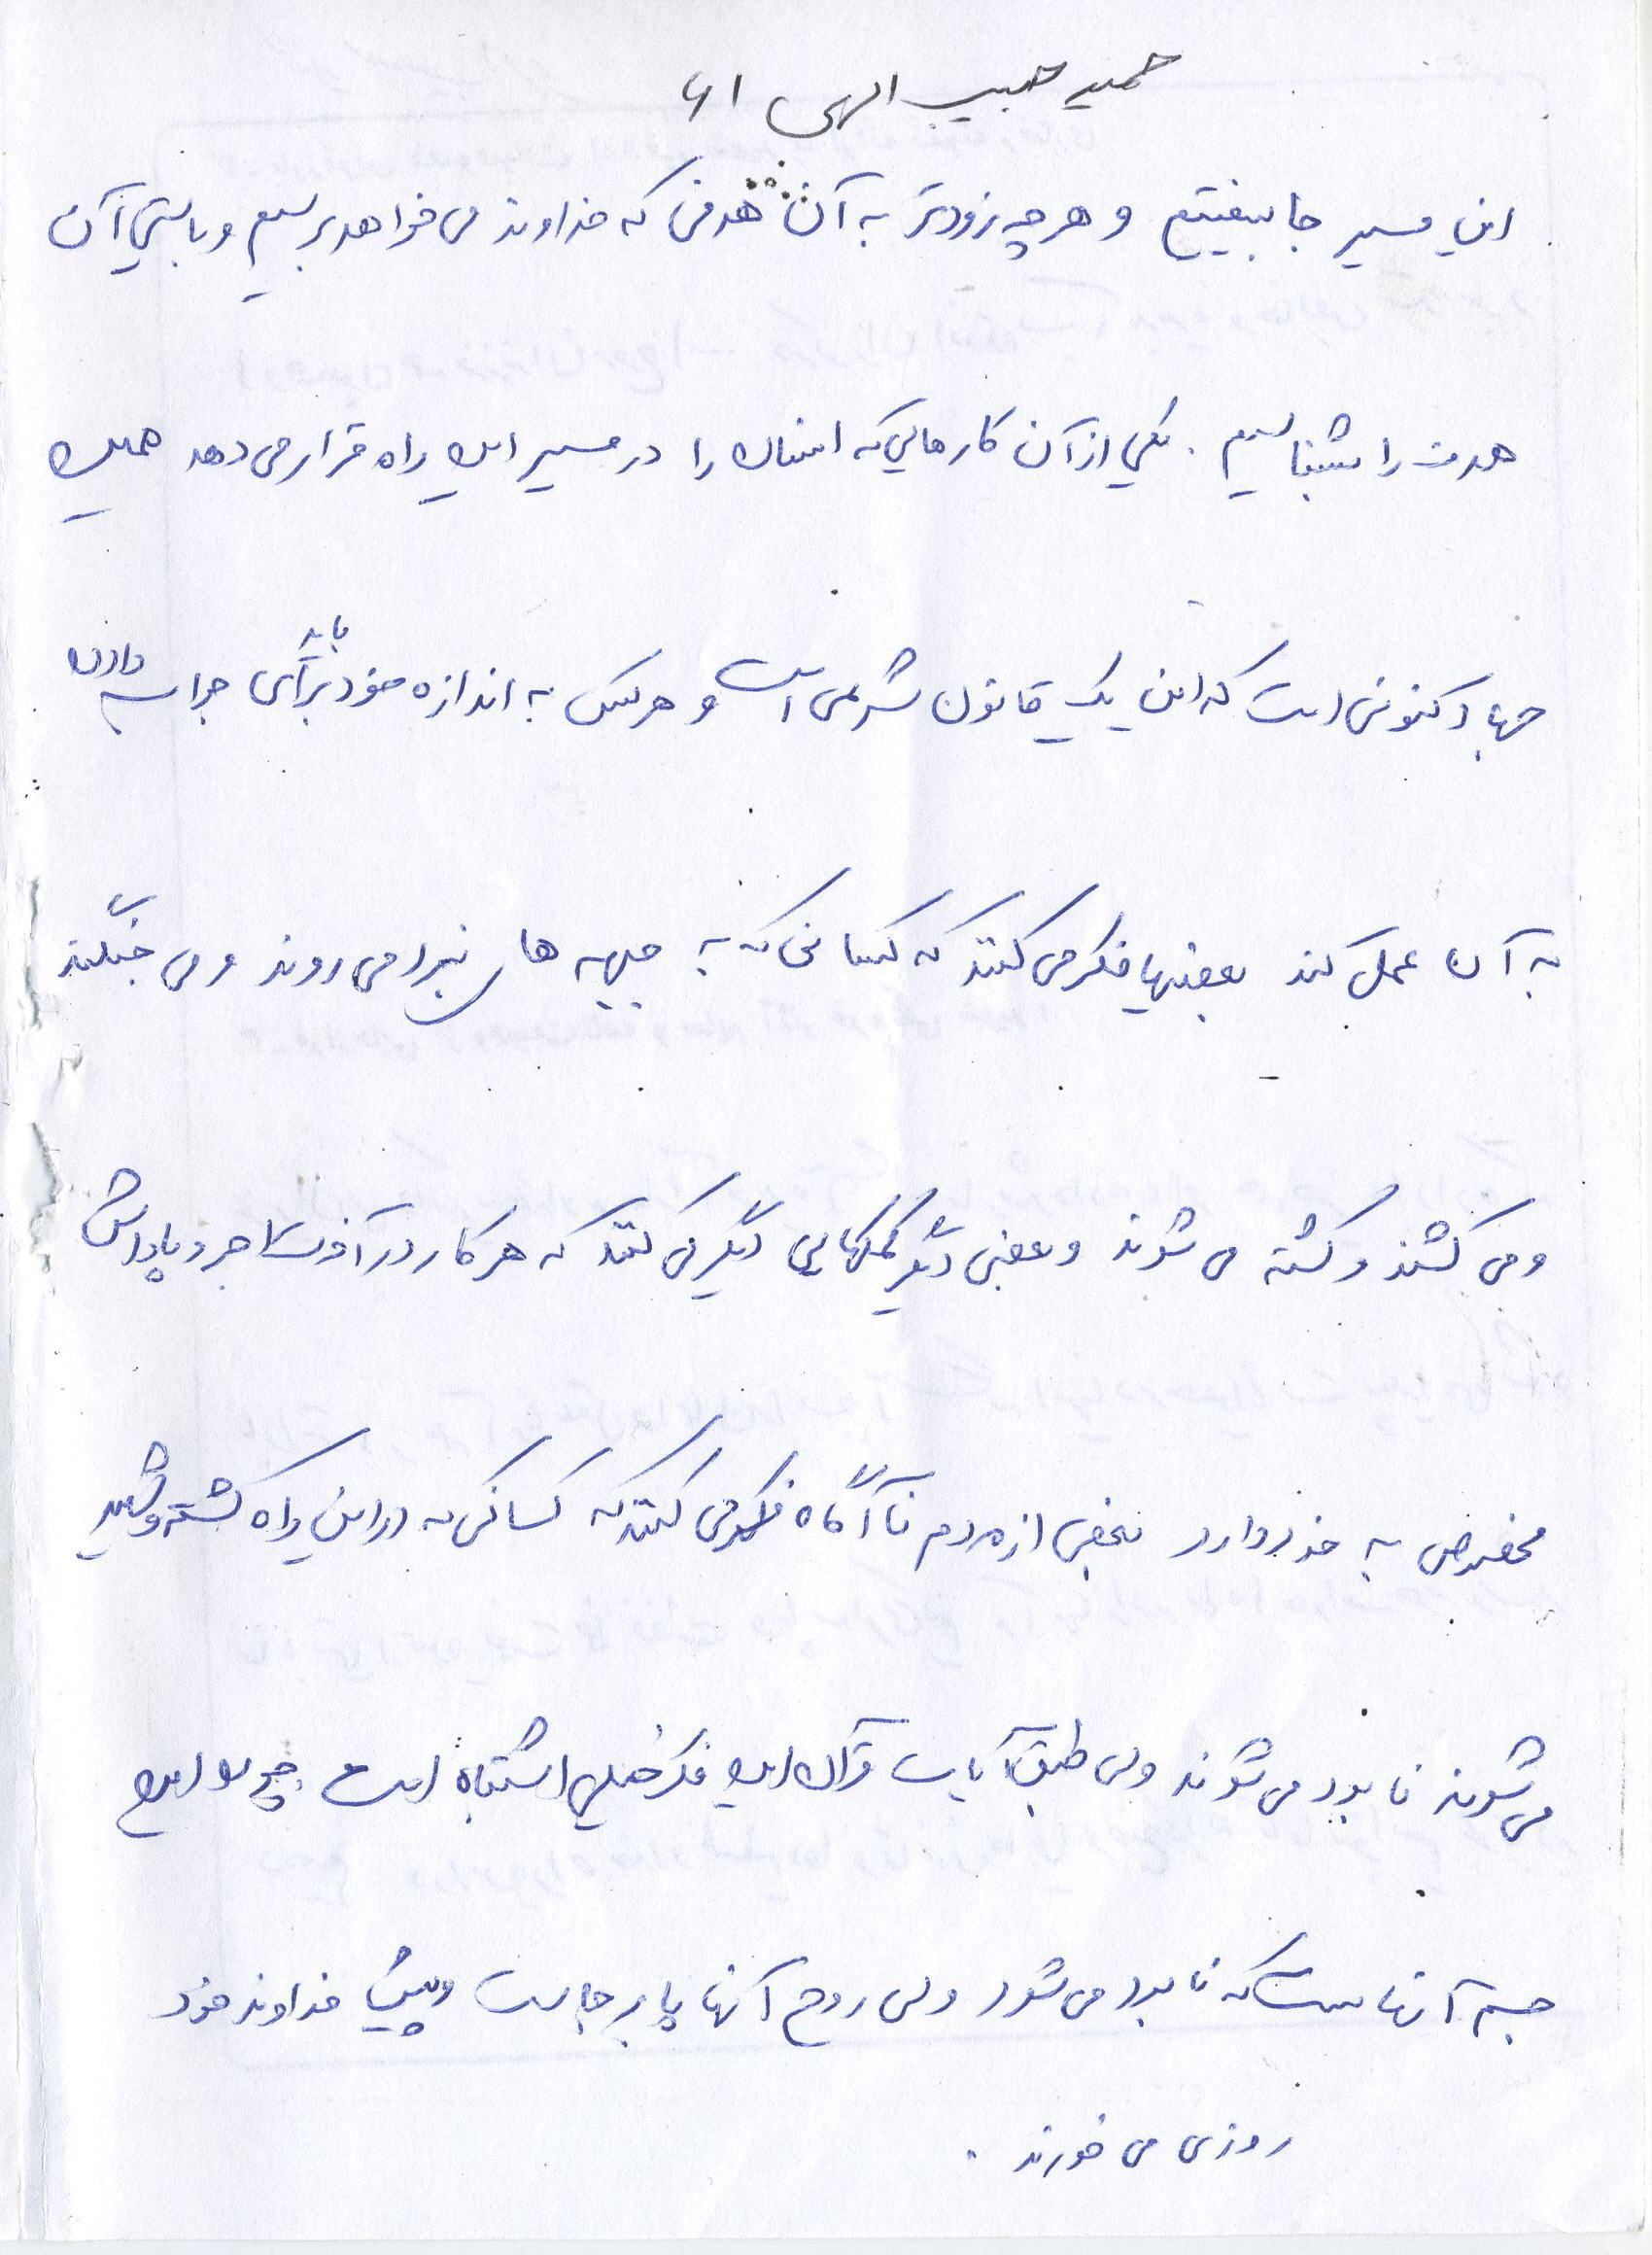 حمید حبیب الهی ۶۱
این مسیر جا بیفیتیم و هر چه زودتر به آن هدفی که خداوند می خواهد برسیم و بایستی آن
هدف را بشناسیم . یکی از آن کارهایی که انسان را در مسیر این راه قرار می دهد همین
جهاد کنونی است که این یک قانون شرعی است و هرکس به اندازه خود باید برای جواب دادن
به آن عمل کند بعضیها فکر می کنند که کسانی که به جبهه ها نبرد می روند و می جنگند
و می کشند و کشته می شوند و بعضی دیگر کمکهایی دیگر می کنند که هر کار در آخرت اجر و پاداش
مخصوص به خود دارد بعضی از مردم نا آگاه فکر می کنند که کسانی که در این راه کشته و شهید
می شوند نابود می شوند ولی طبق آیات قرآن این فکر خیلی اشتباه است چون این
جسم آنهاست که نابود می شود ولی روح آنها پا برجاست و پیش خداوند خود
روزی می خورند .